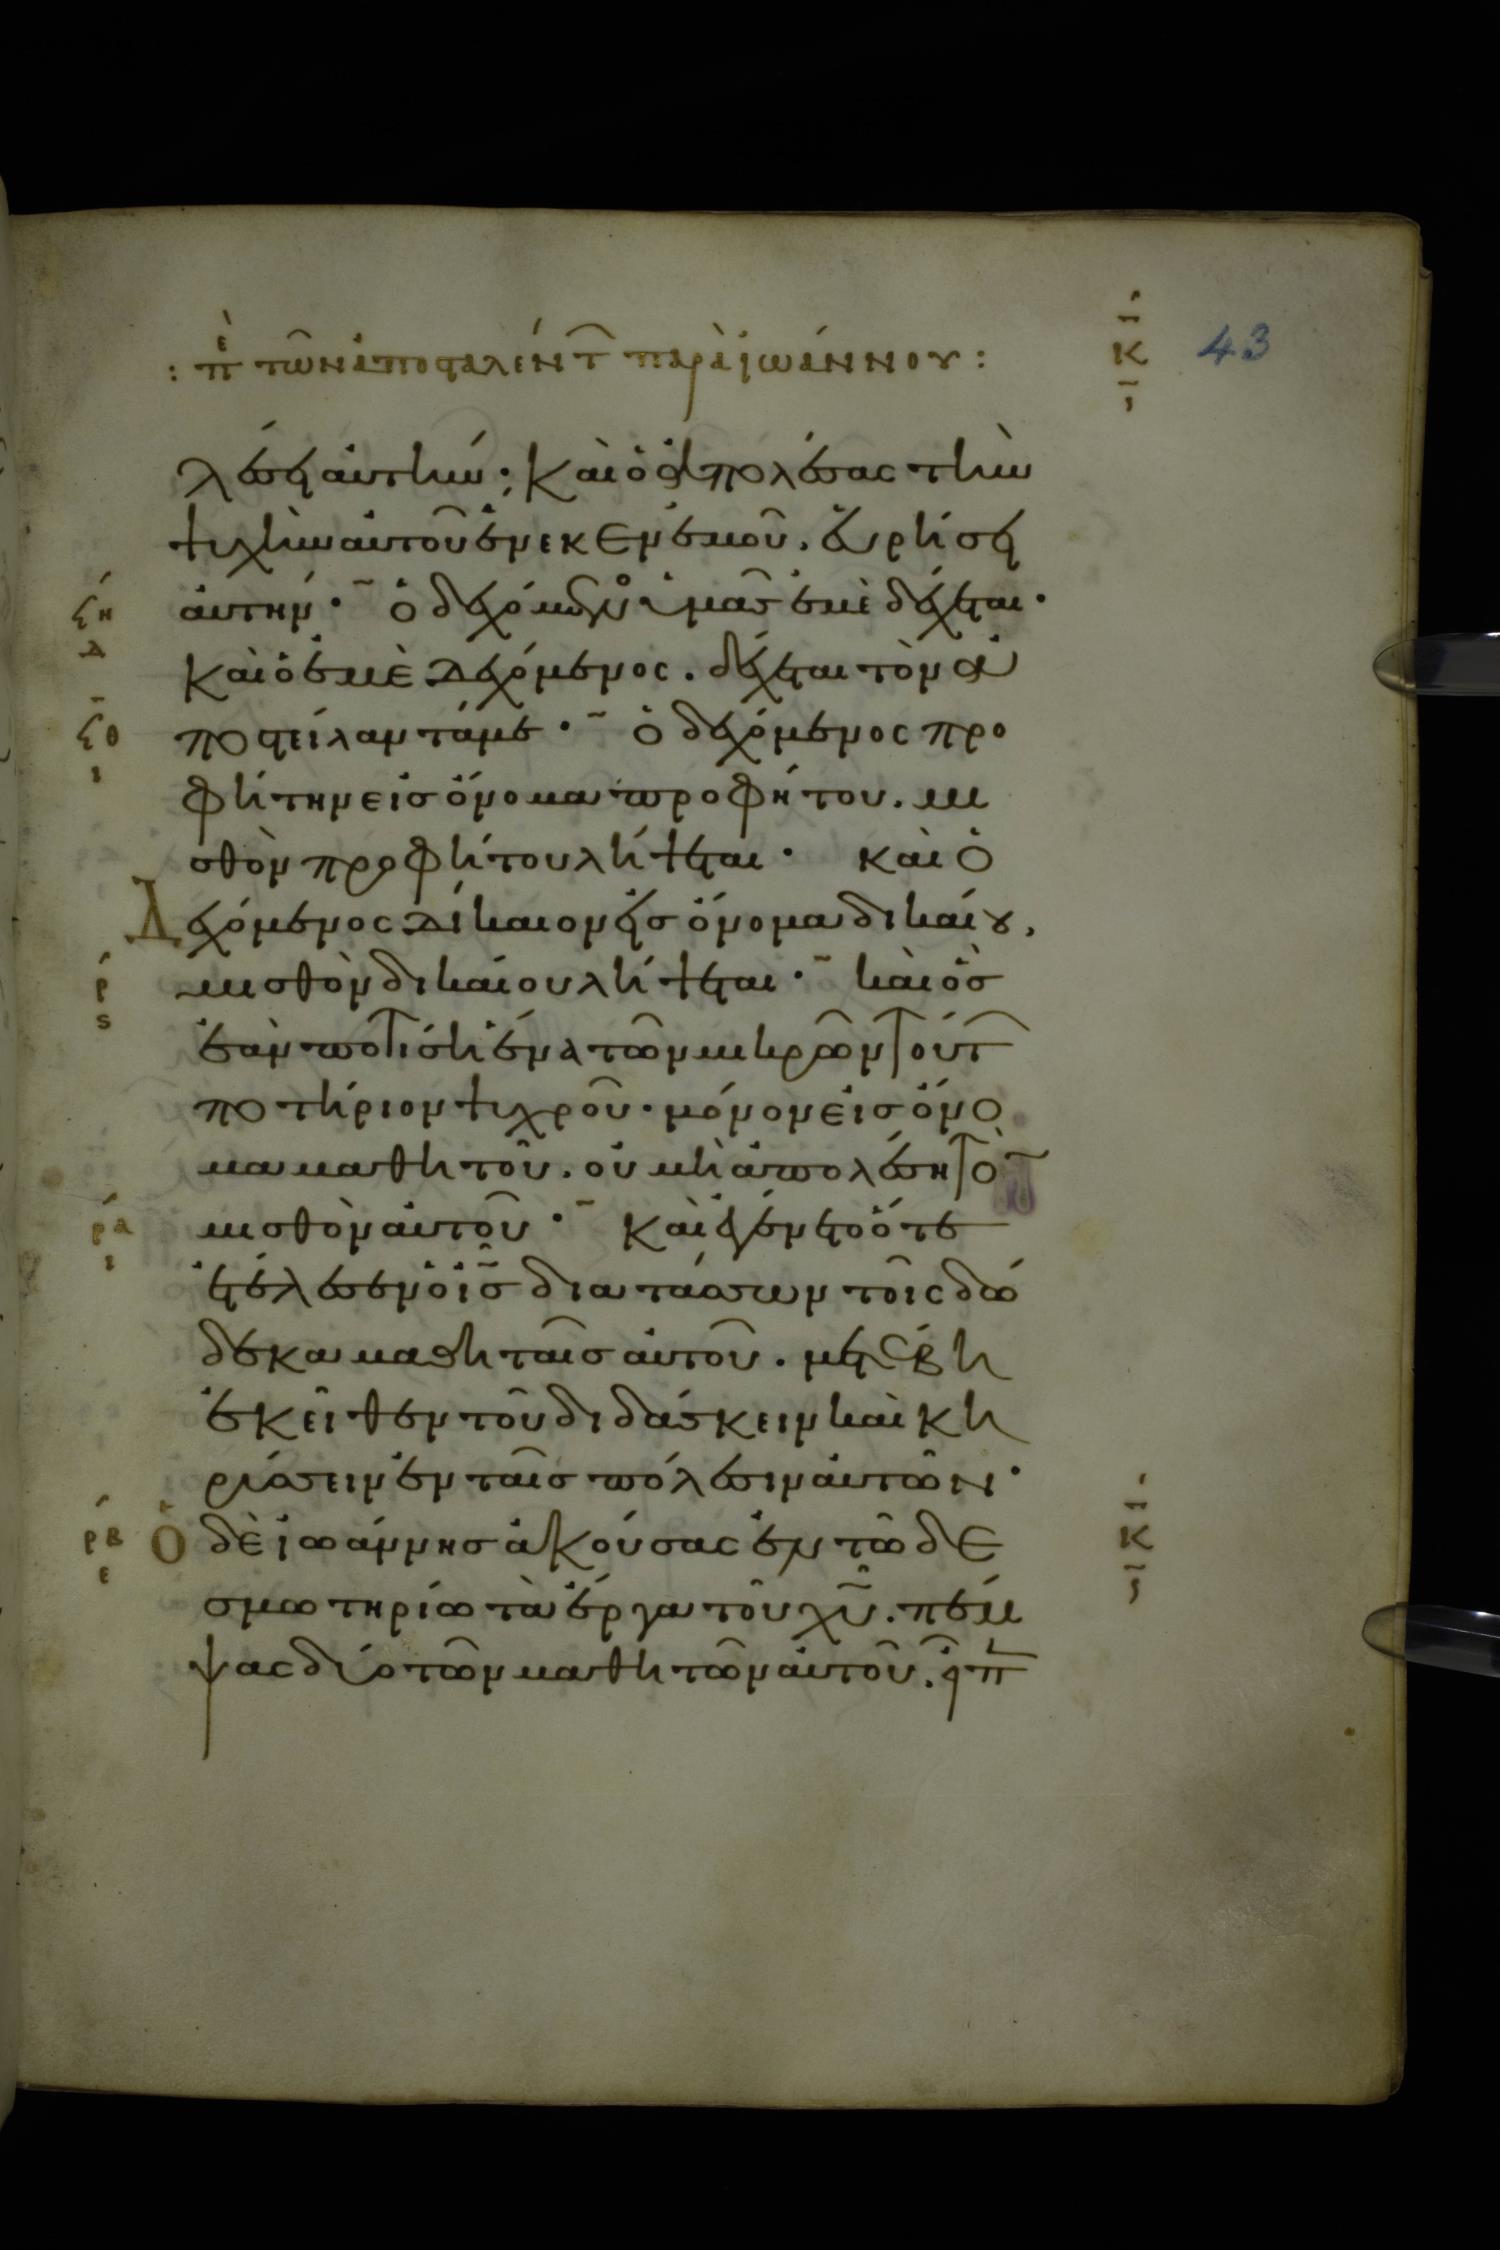 : πὲ τῶν ἀποσταλέντ παρὰ ἰωάννου :
κ
43
λέσει αὐτήν· καὶ ὁ ἀπολέσας τὴν
ψυχὴν αὐτοῦ ἕνεκεν ἐμοῦ. εὑρήσει
ϟη δ
αὐτήν· ὁ δεχόμενος ὑμᾶς ἐμὲ δέχεται·
καὶ ὁ ἐμὲ δεχόμενος. δέχεται τὸν ἀ
ϟθ ι
ποστείλαντά με· ὁ δεχόμενος προ
φήτην εἰς ὄνομα προφήτου. μι
σθὸν προφήτου λήψεται· καὶ ὁ
δεχόμενος δίκαιον εἰς ὄνομα δικαίου,
ρ ς
μισθὸν δικαίου λήψεται· καὶ ὃς
ἐὰν ποτίσῃ ἕνα τῶν μικρῶν τούτ
ποτήριον ψυχροῦ· μόνον εἰς ὄνο
μα μαθητοῦ. οὐ μὴ ἀπολέσῃ τὸ
ρα ι
μισθὸν αὐτοῦ· καὶ ἐγένετο ὅτε
ἐτέλεσεν ὁ ις διατάσσων τοῖς δώ
δεκα μαθηταῖς αὐτοῦ. μετέβη
ἐκεῖθεν τοῦ διδάσκειν καὶ κη
ρύσσειν ἐν ταῖς πόλεσιν αὐτῶν·
ρβ ε
ὁ δὲ ἰωάννης ἀκούσας ἐν τῶ δε
κ
σμωτηρίω τὰ ἔργα τοῦ χυ. πέμ
ψας δύο τῶν μαθητῶν αὐτοῦ. εἶπ